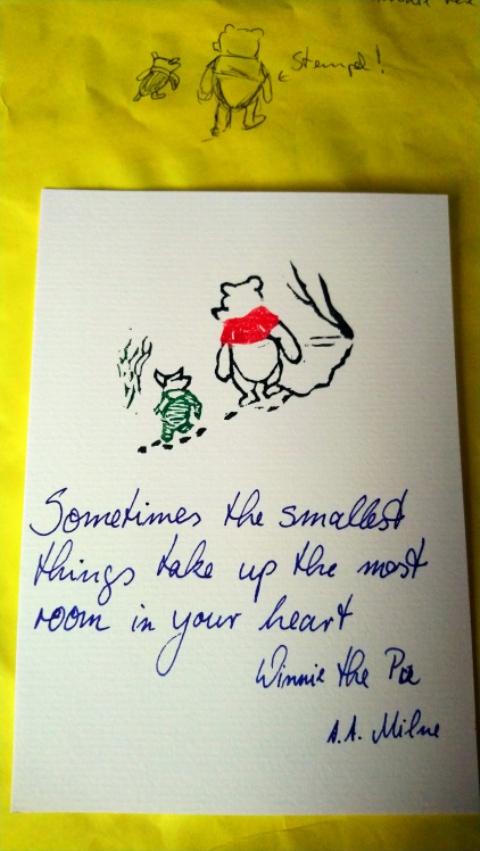 Stempel!
Sometimes the smallest
things take up the most
room in your heart
Winnie the Poe
A.A. Milne